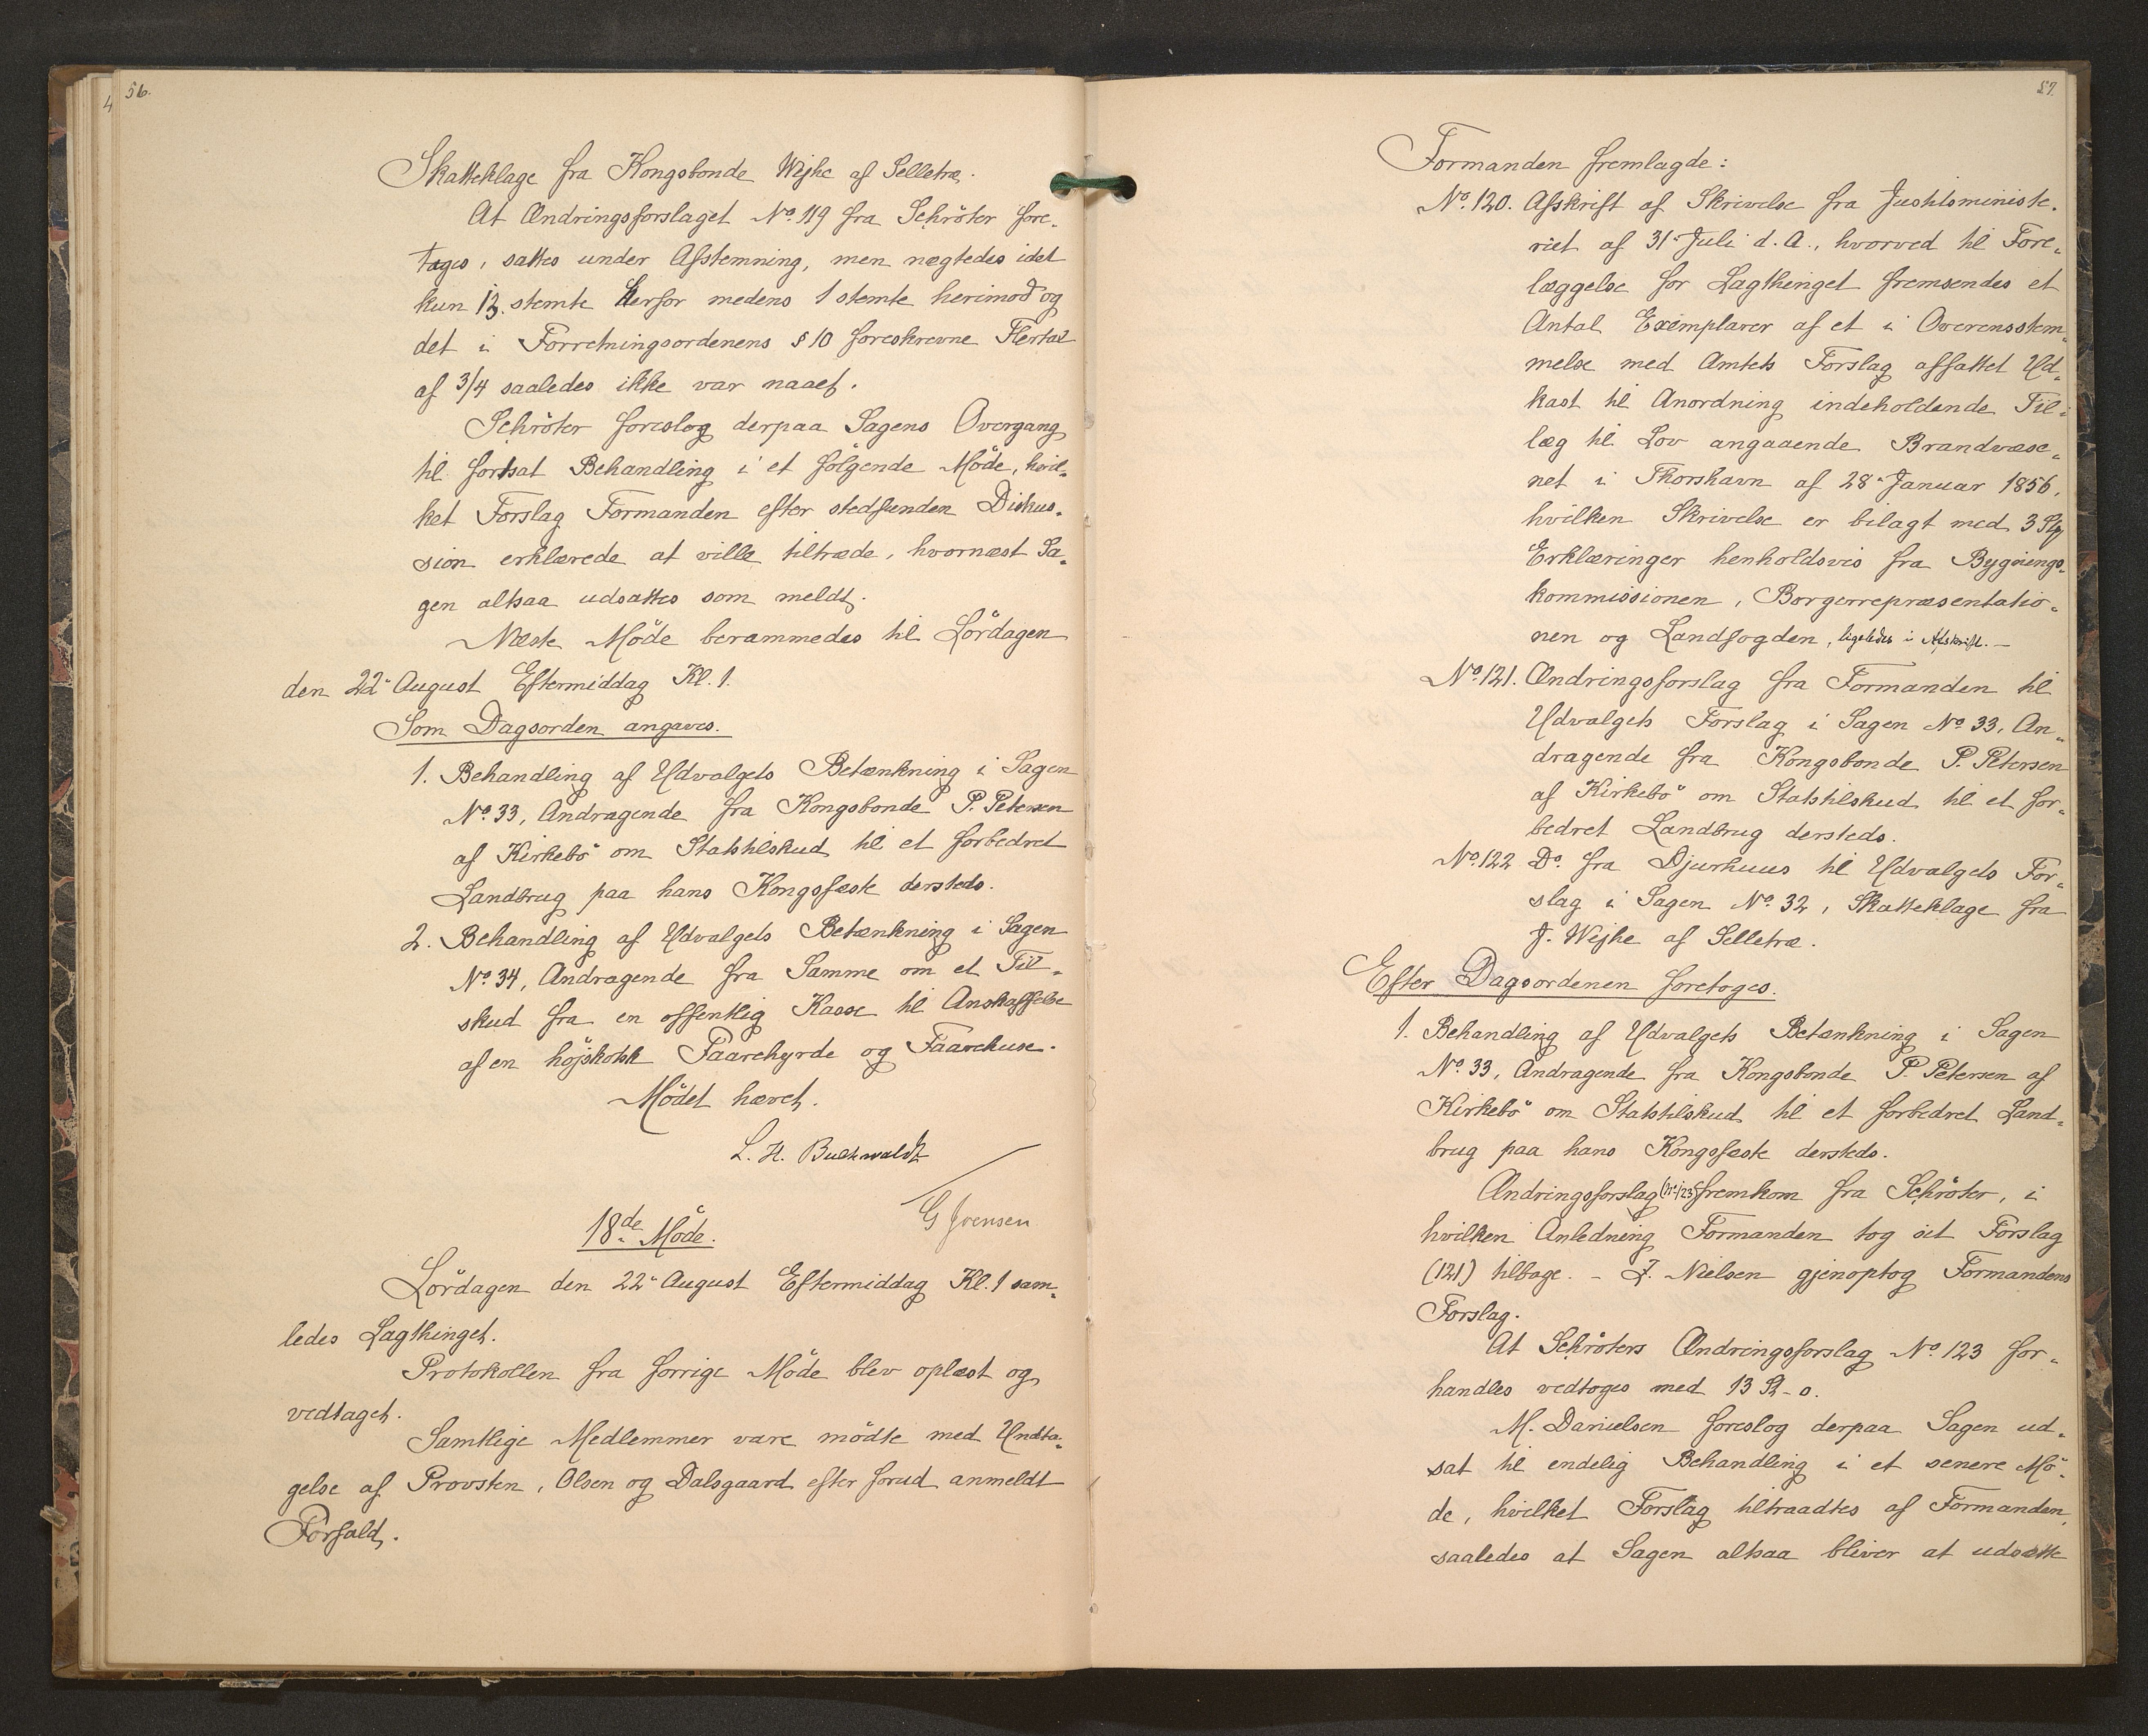 56.
4
Skatteklage fra Kongsbonde Wejhe af Selletræ.
At Ændringsforslaget No. 119 fra Schröter fore-
tages, sattes under Afstemning, men nægtedes idet
kun 13 stemte herfor medens 1 stemte herimod og
det i Forretningsordenens § 10 foreskrevne Flertal
af 3/4 saaledes ikke var naaet.
Schröter foreslog derpaa Sagens Overgang
til fortsat Behandling i et følgende Möde, hvil-
ket Forslag Formanden efter stedfunden Diskus-
sion erklærede at ville tiltræde, hvornæst Sa-
gen altsaa udsattes som meldt.
Næste Möde berammedes til Lördagen
den 22de August Eftermiddag Kl. 1.
Som Dagsorden angaves.
1. Behandling af Udvalgets Betænkning i Sagen
No. 33, Andragende fra Kongsbonde P. Petersen
af Kirkebö om Statstilskud til et forbedret
Landbrug paa hans Kongsfæste dersteds.
2. Behandling af Udvalgets Betænkning i Sagen
No. 34, Andragende fra Samme om et Til-
skud fra en offentlig Kasse til Anskaffelse
af en höjskotsk Faarehyrde og Faarehuse.
Mödet hævet.
L. H. Buchwaldt
G Jvensen
18de Möde.
Lördagen den 22de August Eftermiddag Kl. 1 sam-
ledes Lagthinget.
Protokollen fra forrige Möde blev oplæst og
vedtaget.
Samtlige Medlemmer vare mödte med Undta-
gelse af Provsten, Olsen og Dalsgaard efter forud anmeldt
Forfald.
57.
Formanden fremlagde:
No. 120. Afskrift af Skrivelse fra Justitsministe-
riet af 31te Juli d. A., hvorved til Fore-
læggelse for Lagthinget fremsendes et
Antal Exemplarer af et i Overensstem-
melse med Amtets Forslag affattet Ud-
kast til Anordning indeholdende Til-
læg til Lov angaaende Brandvæse-
net i Thorshavn af 28de Januar 1856,
hvilken Skrivelse er bilagt med 3 Stk
Erklæringer henholdsvis fra Bygnings-
kommissionen, Borgerrepræsentatio-
nen og Landfogden, ligeledes i Afskrift. -
No. 121. Ændringsforslag fra Formanden til
Udvalgets Forslag i Sagen No. 33, An-
dragende fra Kongsbonde P. Petersen
af Kirkebö om Statstilskud til et for-
bedret Landbrug dersteds.
No. 122 Do. fra Djurhuus til Udvalgets For-
slag i Sagen No. 32, Skatteklage fra
J. Wejhe af Selletræ.
Efter Dagsordenen foretoges.
1. Behandling af Udvalgets Betænkning i Sagen
No. 33, Andragende fra Kongsbonde P. Petersen af
Kirkebö om Statstilskud til et forbedret Land-
brug paa hans Kongsfæste dersteds.
Ændringsforslag (No 123) fremkom fra Schröter, i
hvilken Anledning Formanden tog sit Forslag
(121) tilbage. - J. Nielsen gjenoptog Formandens
Forslag.
At Schröters Ændringsforslag No. 123 for-
handles vedtoges med 13 St - 0.
M. Danielsen foreslog derpaa Sagen ud-
sat til endelig Behandling i et senere Mö-
de, hvilket Forslag tiltraadtes af Formanden,
saaledes at Sagen altsaa bliver at udsætte